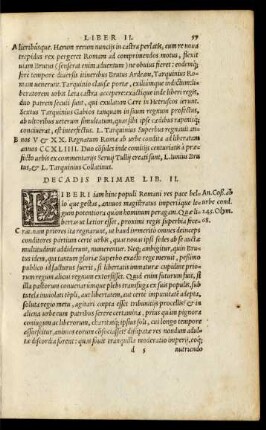 LIBER II. 57
A lieribúsque. Harum rerum nuncijs in castra perlatis, cum re noua
trepidus rex pergeret Romam ad comprimendos motus, flexit
viam Brutus (senserat enim aduentum) ne obuius fieret: eodémque
ferè tempore diuersis itineribus Brutus Ardeam, Tarquinius Ro-
mam venerunt. Tarquinio clausæ portæ, exiliúmque indictum: li-
beratorem vrbis læta castra accepere: exactíque inde liberi regis,
duo patrem secuti sunt, qui exulatum Cære in Hetruscos ierunt.
Sextus Tarquinius Gabios tanquam in suum regnum profectus,
ab vltoribus veterum simultatum, quas sibi ipse cædibus rapinísq;
conciuerat, est interfectus. L. Tarquinius Superbus regnauit an-
B nos V & XX. Regnatum Romæ ab vrbe condita ad liberatam
annos CCXLIIII. Duo cōsules inde comitijs centuriatis à præ-
fecto vrbis ex commentarijs Seruij Tullij creati sunt, L. Iunius Bru-
tus, & L. Tarquinius Collatinus.
DECADIS PRIMAE LIB. II.
LIBERI iam hinc populi Romani res pace bel-
lóque gestas, annuos magistratus imperiáque le-
gum potentiora quàm hominum peragam. Quæ li-
bertas vt lætior esset, proximi regis superbia fece-
C rat. nam priores ita regnarunt, vt haud immeritò omnes deinceps
conditores partium certè vrbis, quas nouas ipsi sedes ab se auctæ
multitudini addiderunt, numerentur. Neq; ambigitur, quin Bru-
tus idem, qui tantum gloriæ Superbo exacto rege meruit, pessimo
publico id facturus fuerit, si libertatis immaturæ cupidine priorum
regum alicui regnum extorsisset. Quid enim futurum fuit, si
illa pastorum conuenarúmque plebs transfuga ex suis populis, sub
tutela inuiolati tēpli, aut libertatem, aut certè impunitatem adepta,
soluta regio metu, agitari cœpta esset tribunitijs procellis? & in
aliena vrbe cum patribus serere certamina, prius quàm pignora
coniugum ac liberorum, charitásq; ipsius soli, cui longo tempore
assuescitur, animos eorum cōsociasset? dissipatæ res nondum adul-
tæ discordia forent: quas fouit tranquilla moderatio imperij, eóq;
An. Cost. ab
vrbe cond.
245. Olym.
68.
d 5 nutriendo